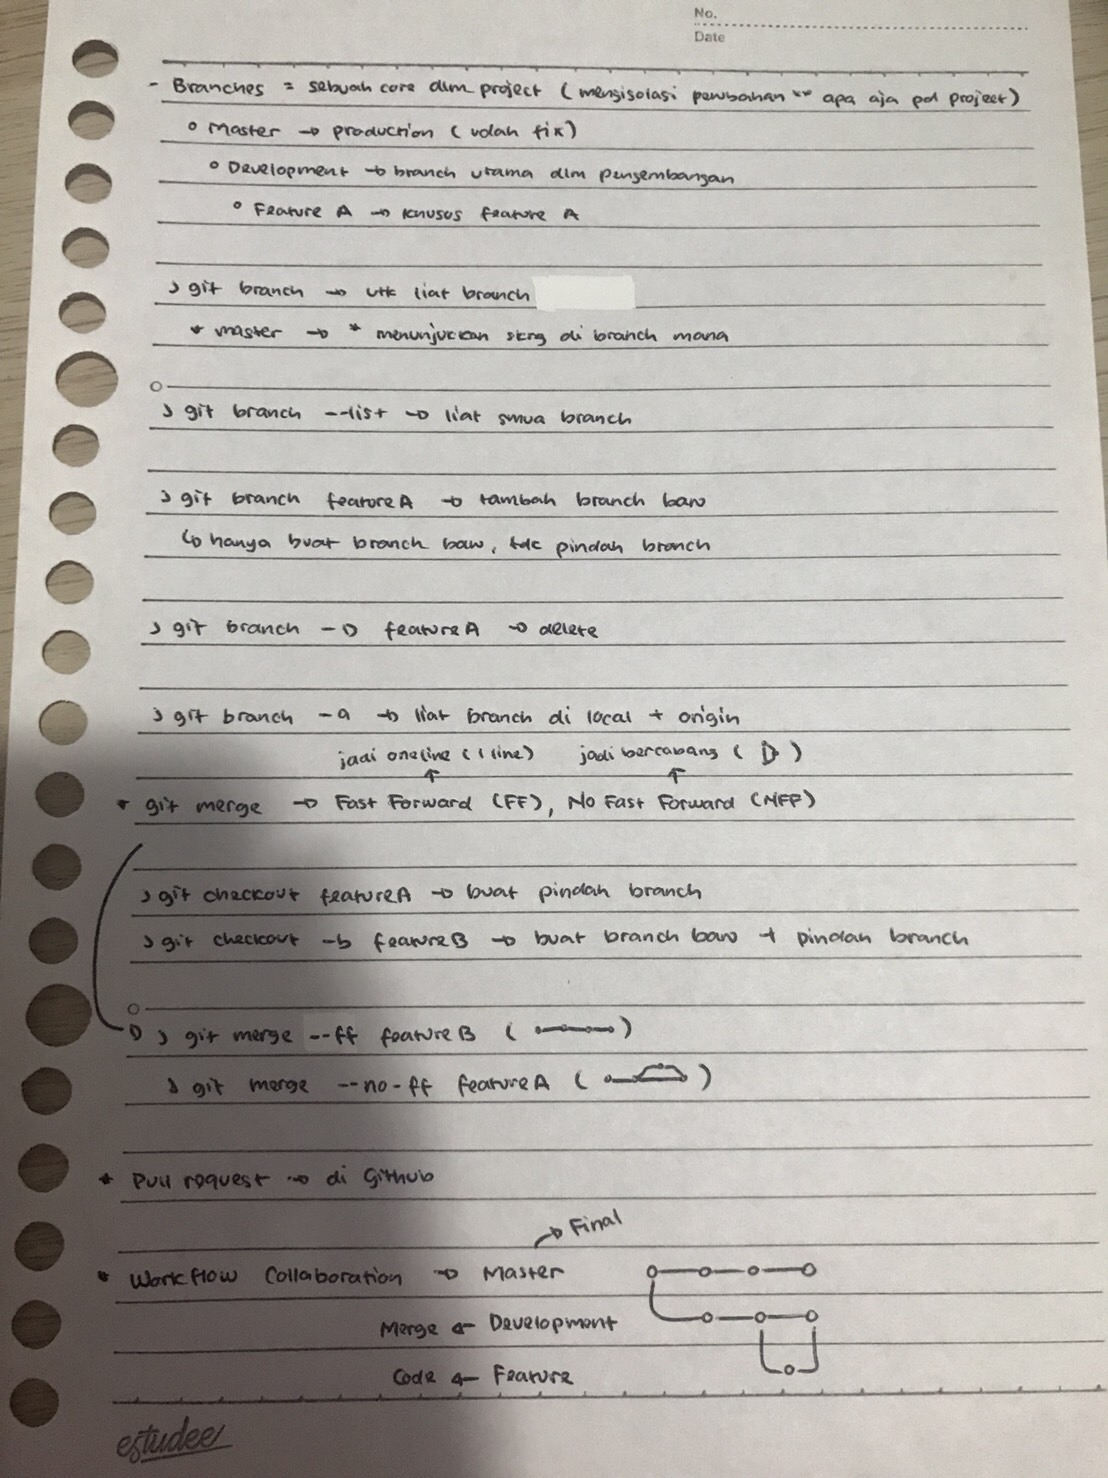 No.
Date
- Branches = sebuah core dlm project (mengisolasi perubahan" apa aja pd project)
° Master → production (udah fix)
° Development → branch utama dlm pengembangan
° Feature A → khusus feature A
> git branch → utk liat branch
* master → * menunjukkan skrg di branch mana
> git branch --list → liat smua branch
> git branch featureA → tambah branch baru
↳ hanya buat branch baru, tdk pindah branch
> git branch -D featureA → delete
> git branch -a → liat branch di local + origin
jadi oneline (1 line) jadi bercabang ( )
* git merge → Fast Forward (FF), No Fast Forward (NFF)
> git checkout featureA → buat pindah branch
> git checkout -b featureB → buat branch baru + pindah branch
> git merge --ff featureB ( )
> git merge --no-ff featureA ( )
* Pull request → di Github
→ Final
* Workflow Collaboration → Master
Merge ← Development
Code ← Feature
estudee